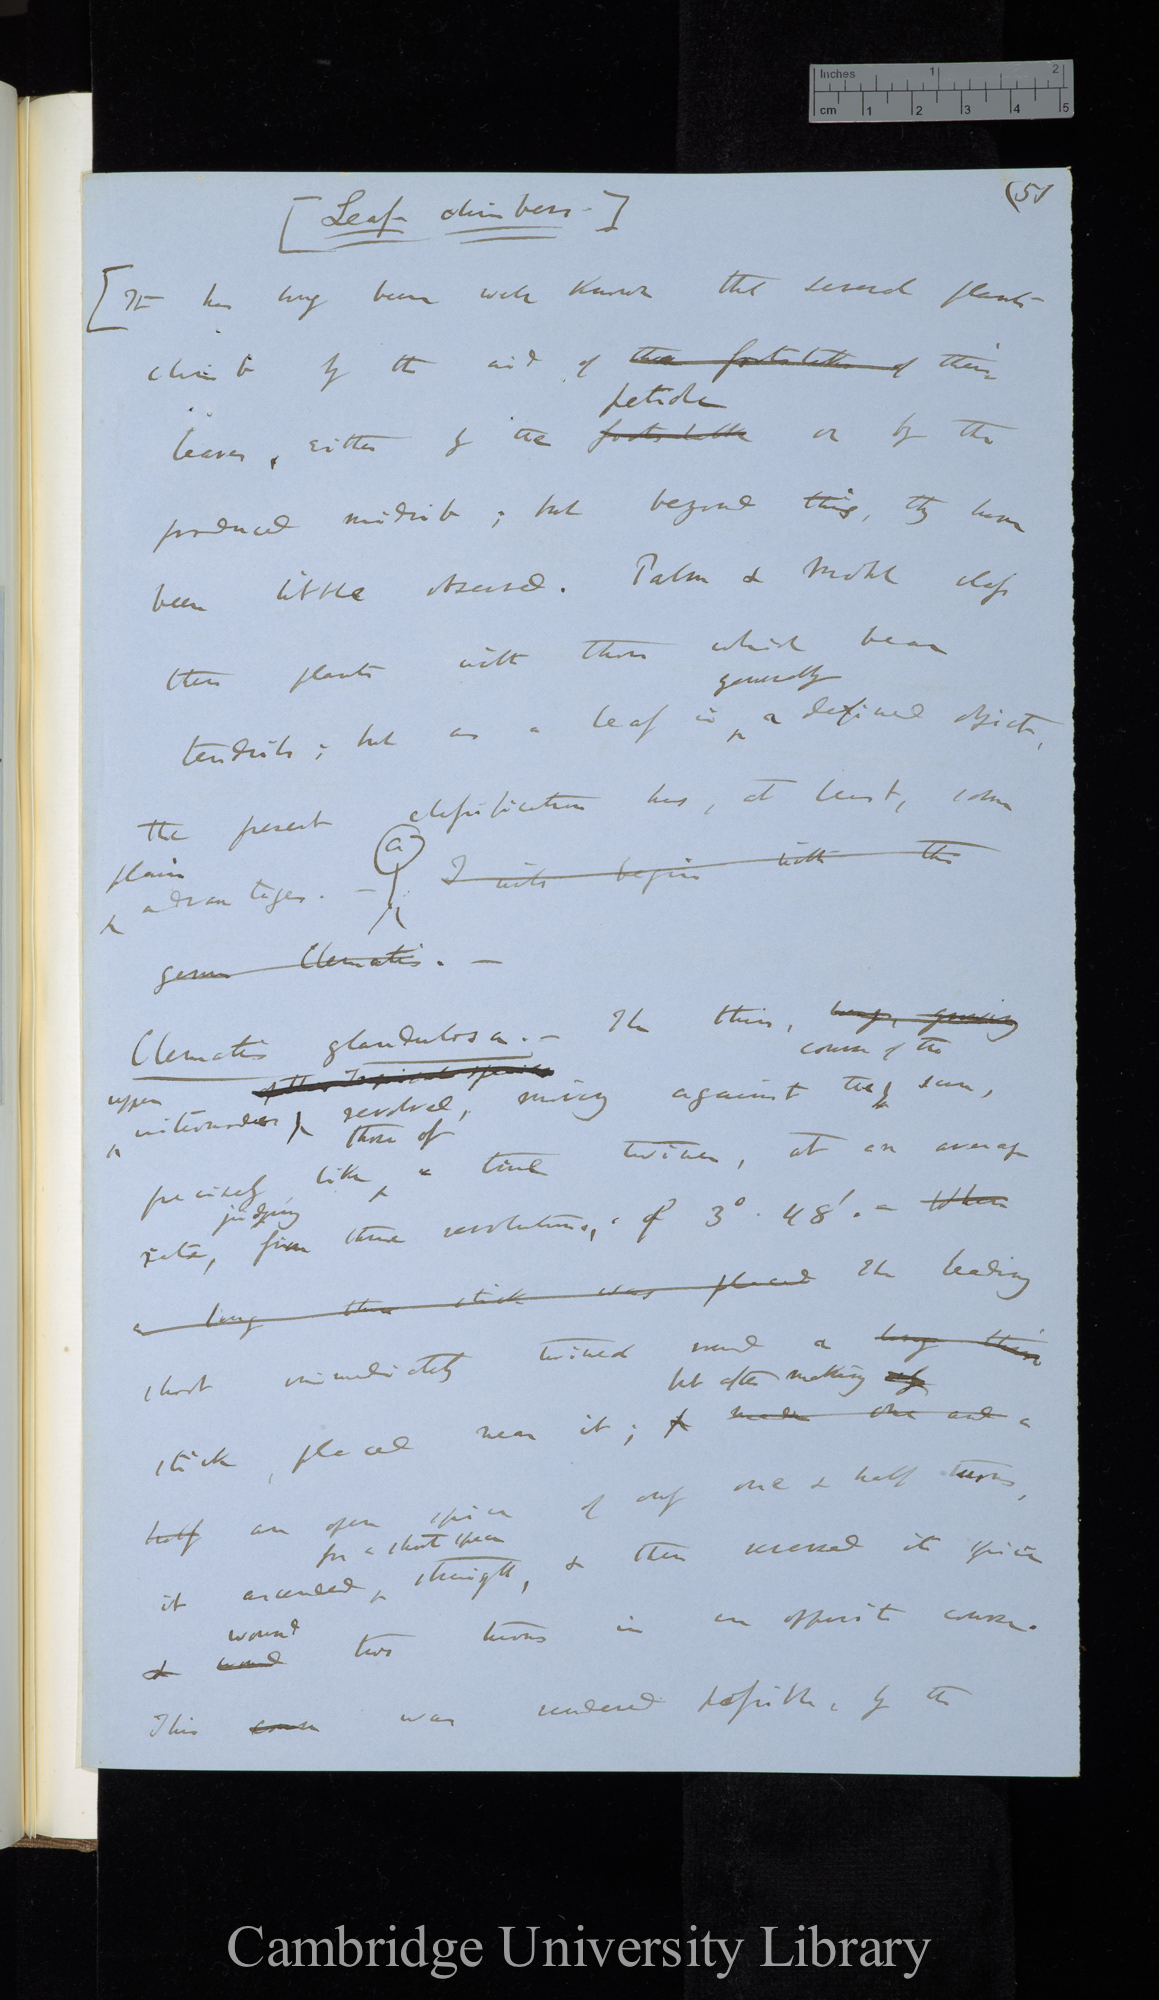 Inches 1 2
cm 1 2 3 4 5
(51
[Leaf climbers.]
[It has long been well known that several plants
climb by the aid of the footstalks of their
petiole
leaves, either by the footstalk or by the
produced midrib; but beyond this, they have
been little observed. Palm & Mohl class
these plants with those which bear
generally
tendrils; but as a leaf is a defined object,
the present classification has, at least, some
plain
(a)
advantages. — I will begin with the
genus Clematis. —
Clematis glandulosa. — The thin, long, growing
course of the
upper of this Tropical species
internodes revolved, moving against the sun,
those of
precisely like a true twiner, at an average
judging
rate, from three revolutions, of 3° . 48'. — When
a long thin stick was placed The leading
shoot immediately twined round a long thin
but after making
stick, placed near it; & made one and a
half an open spire of only one & half turns,
for a short space
it ascended straight, & then reversed its spire
wound
& wound two turns in an opposite course.
This was rendered possible, by the
Cambridge University Library